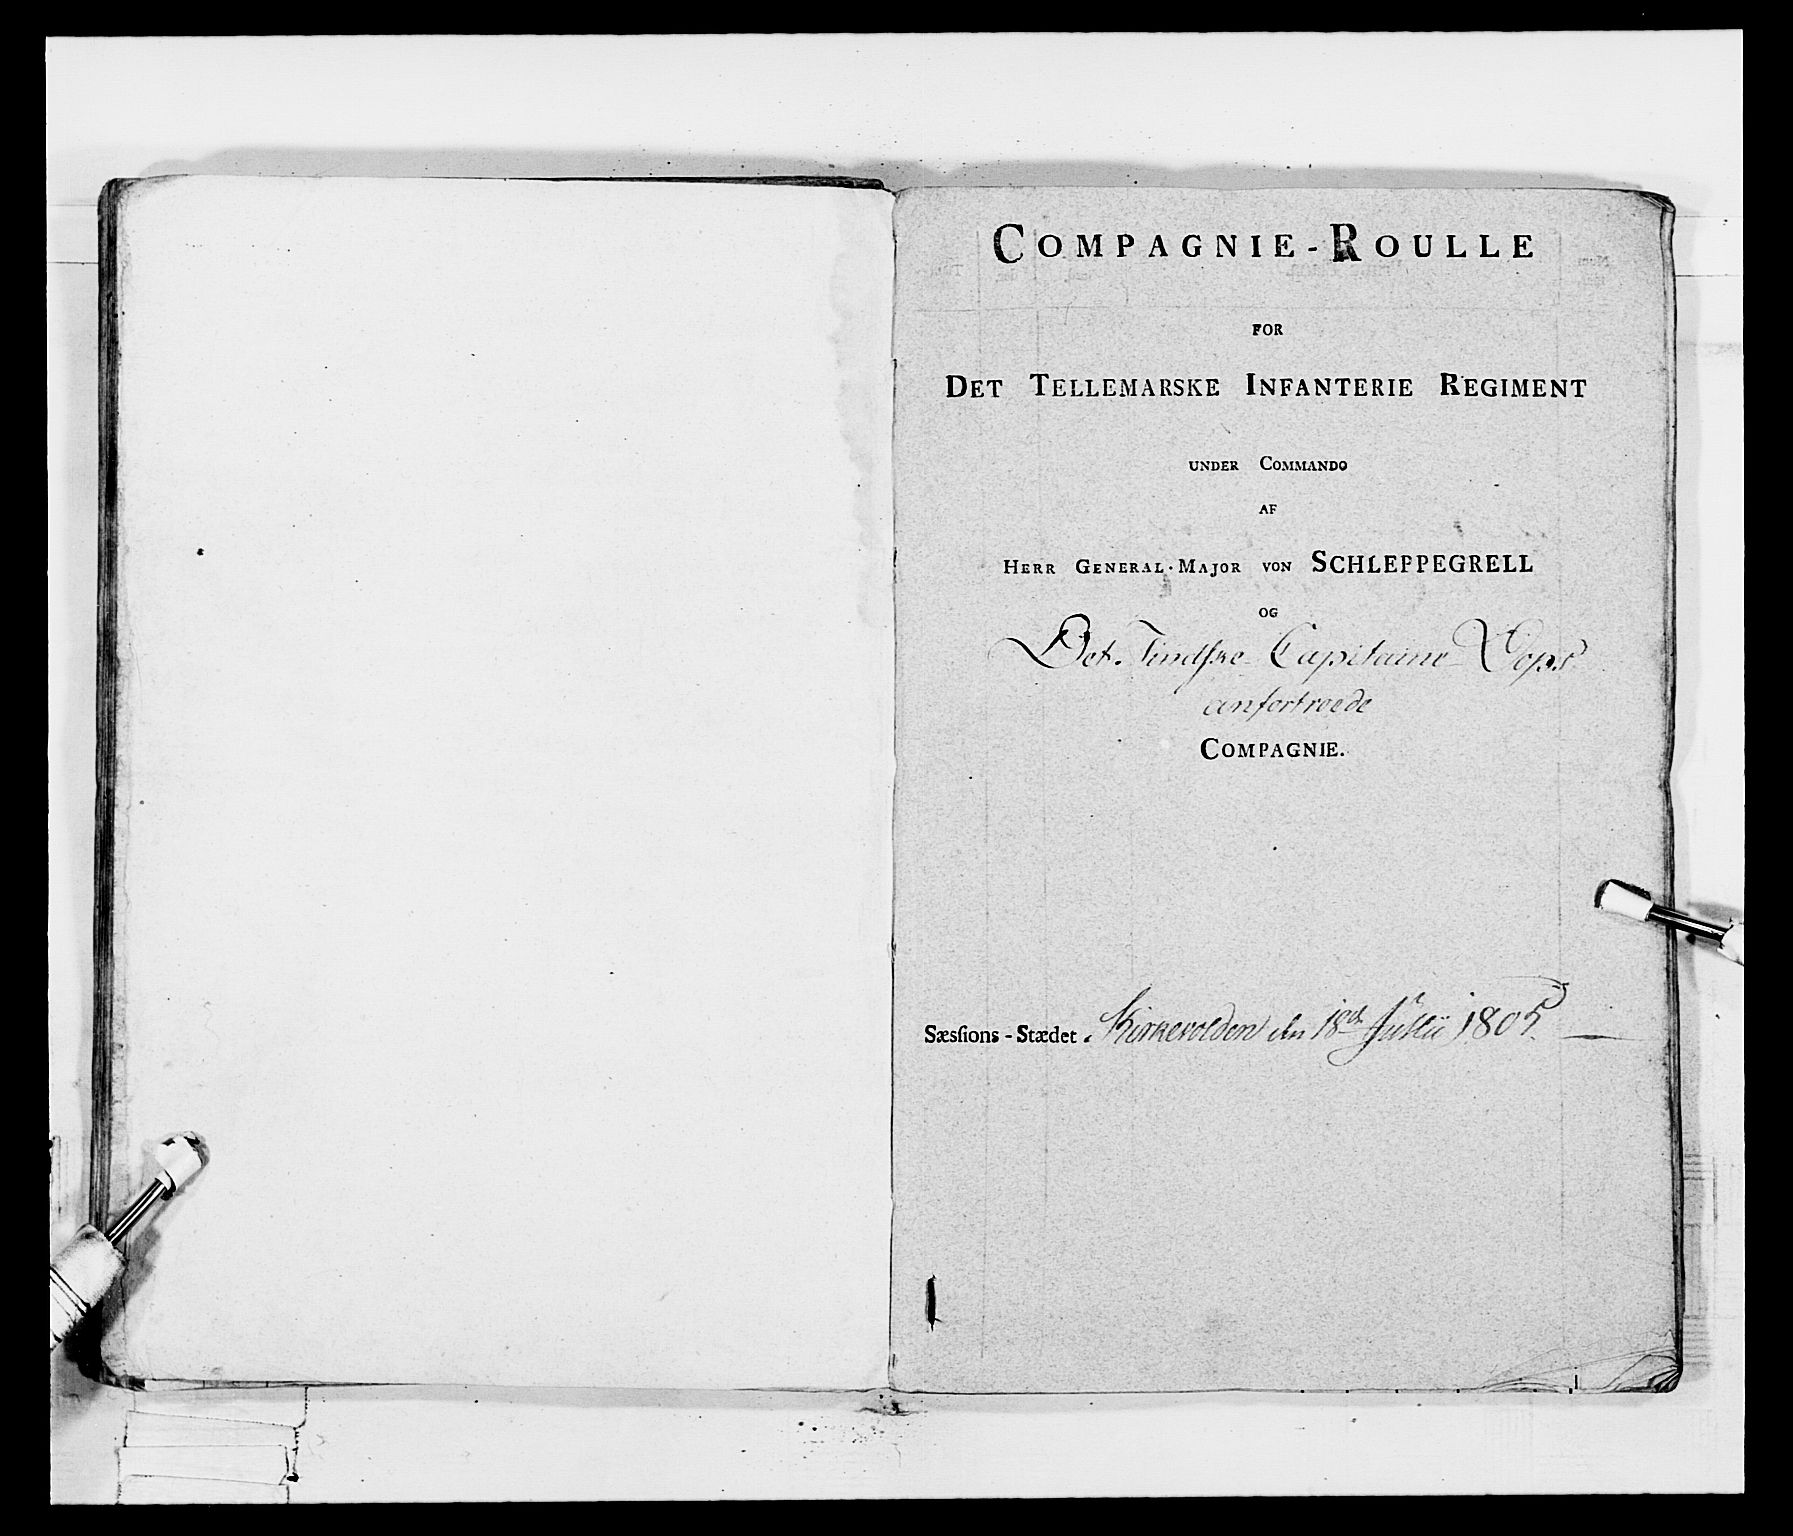 COMPAGNIE-ROULLE
FOR
DET TELLEMARSKE INFANTERIE REGIMENT
UNDER COMMANDO
AF
HERR GENERAL-MAJOR VON SCHLEPPEGRELL
OG
Det Tindske Capitaine
anfortroede
COMPAGNIE.
Sæsſions-Stædet Kirkevolden den 18de Julii 1805